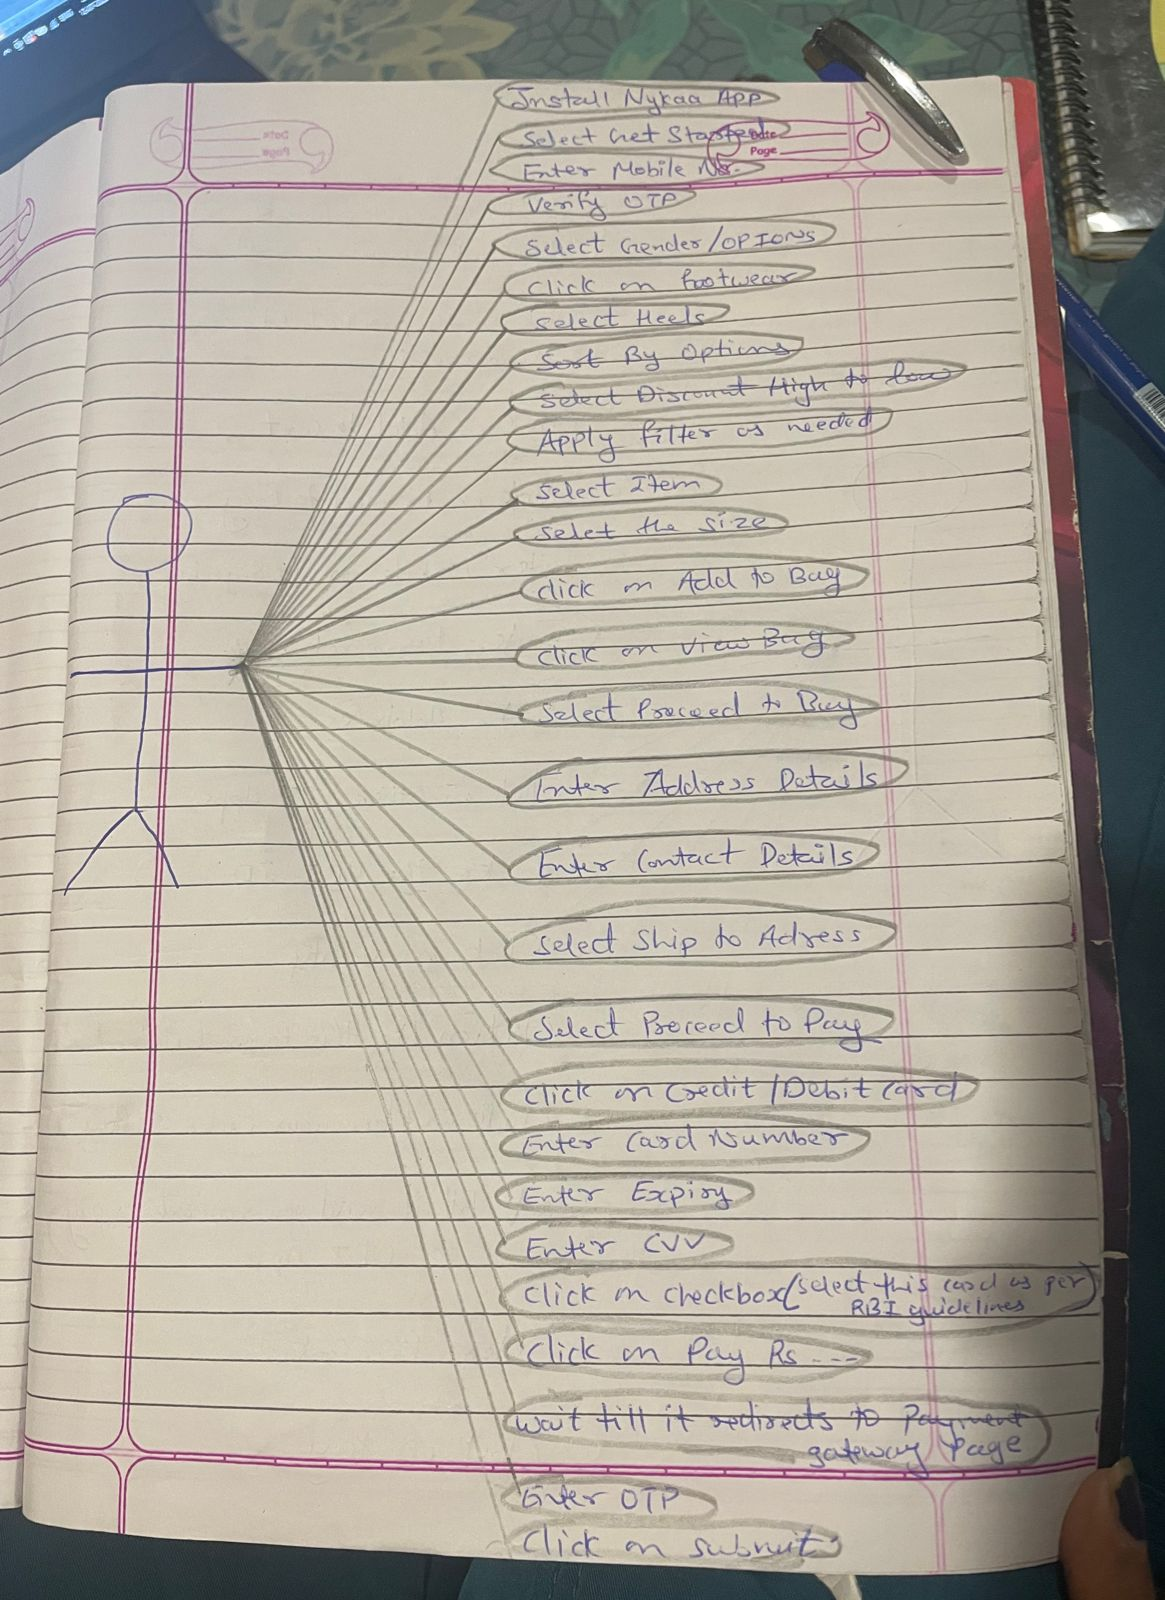 Install Nykaa APP
Select Get Started
Date
Page
Enter Mobile No.
Verify OTP
Select Gender/OPIONS
Click on footwear
Select Heels
Sort By Options
Select Discount High to low
Apply filter as needed
Select Item
Select the size
Click on Add to Bag
Click on View Bag
Select Proceed to Buy
Enter Address Details
Enter Contact Details
Select Ship to Adress
Select Proceed to Pay
Click on Credit/Debit Card
Enter Card Number
Enter Expiry
Enter CVV
Click on checkbox(select this card as per
RBI guidelines
Click on Pay Rs ---
wait till it redirects to Payment
gateway Page
Enter OTP
Click on submit